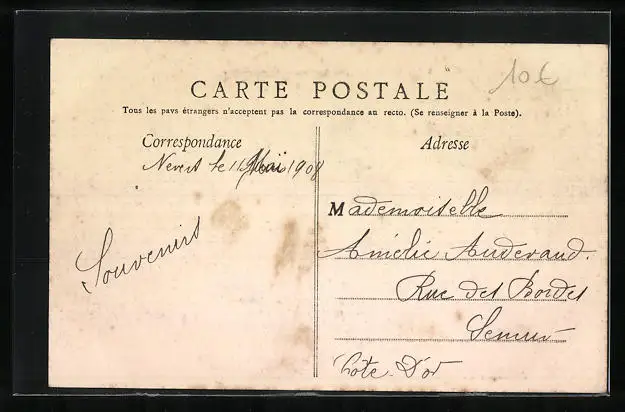 10 €
CARTE POSTALE
Tous les pays étrangers n'acceptent pas la correspondance au recto. (Se renseigner à la Poste).
Correspondance
Nevers le 11 Mai 1908
Souvenirs
Adresse
Mademoiselle
Amélie Auderaud.
Rue des Bordes
Semur
Côte-D'or